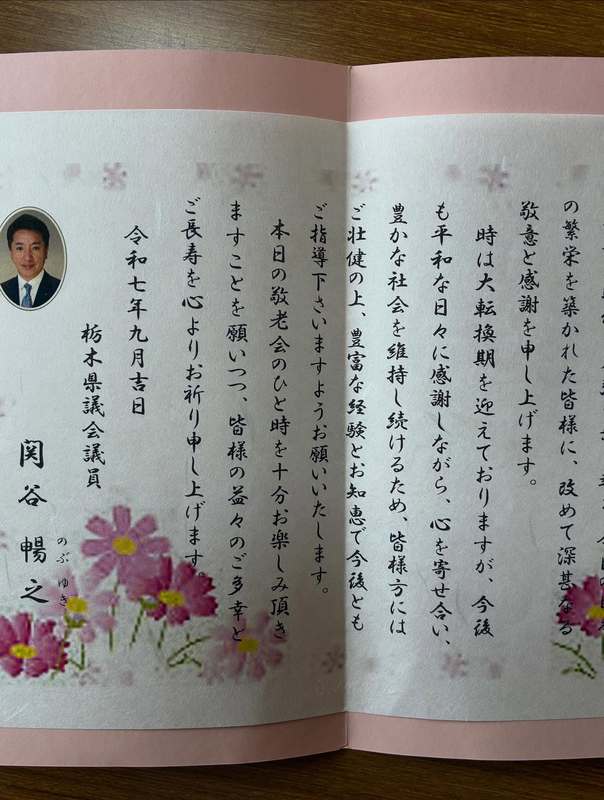 の繁栄を築かれた皆様に、改めて深甚なる
敬意と感謝を申し上げます。
時は大転換期を迎えておりますが、今後
も平和な日々に感謝しながら、心を寄せ合い、
豊かな社会を維持し続けるため、皆様方には
ご壮健の上、豊富な経験とお知恵で今後とも
ご指導下さいますようお願いいたします。
本日の敬老会のひと時を十分お楽しみ頂き
ますことを願いつつ、皆様の益々のご多幸と
ご長寿を心よりお祈り申し上げます。
令和七年九月吉日
栃木県議会議員
関谷暢之
のぶゆき